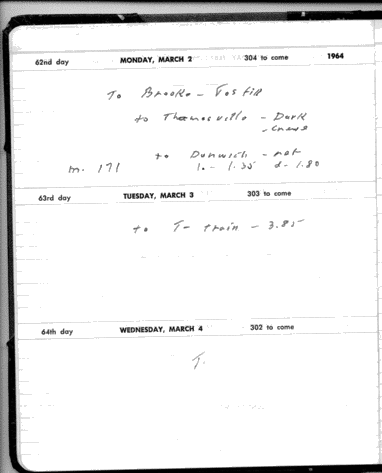 62nd day MONDAY, MARCH 2 304 to come 1964
To Brooke - Vosfill
to Thomasville - Dark
to Dunwich - net
m. 171 l. - 1.35 d - 1.80
63rd day TUESDAY, MARCH 3 303 to come
to T- train - 3.85
64th day WEDNESDAY, MARCH 4 302 to come
T.